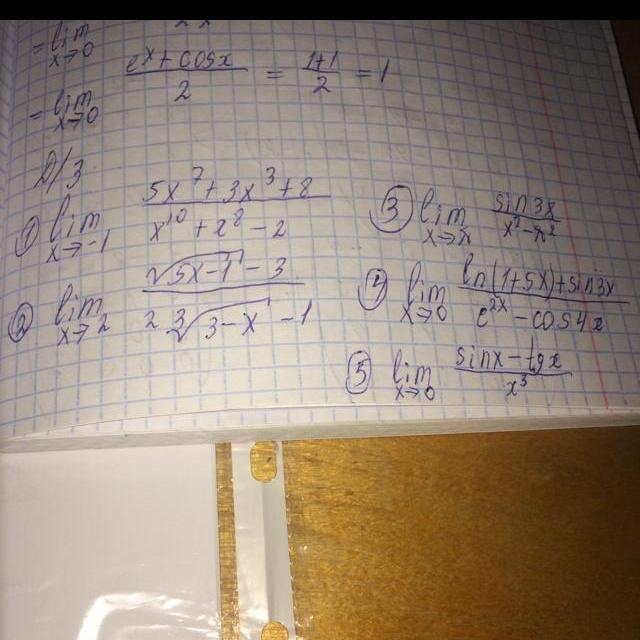 = lim x→0
= lim x→0 (e^x + cosx)/2 = (1+1)/2 = 1
Д/З
① lim x→-1 (5x^7 + 3x^3 + 8)/(x^10 + x^8 - 2)
② lim x→2 (√(5x-1) - 3)/(2∛(3-x) - 1)
③ lim x→π sin3x/(x^2-π^2)
④ lim x→0 (ln(1+5x)+sin3x)/(e^2x - cos4x)
⑤ lim x→0 (sinx - tgx)/x^3